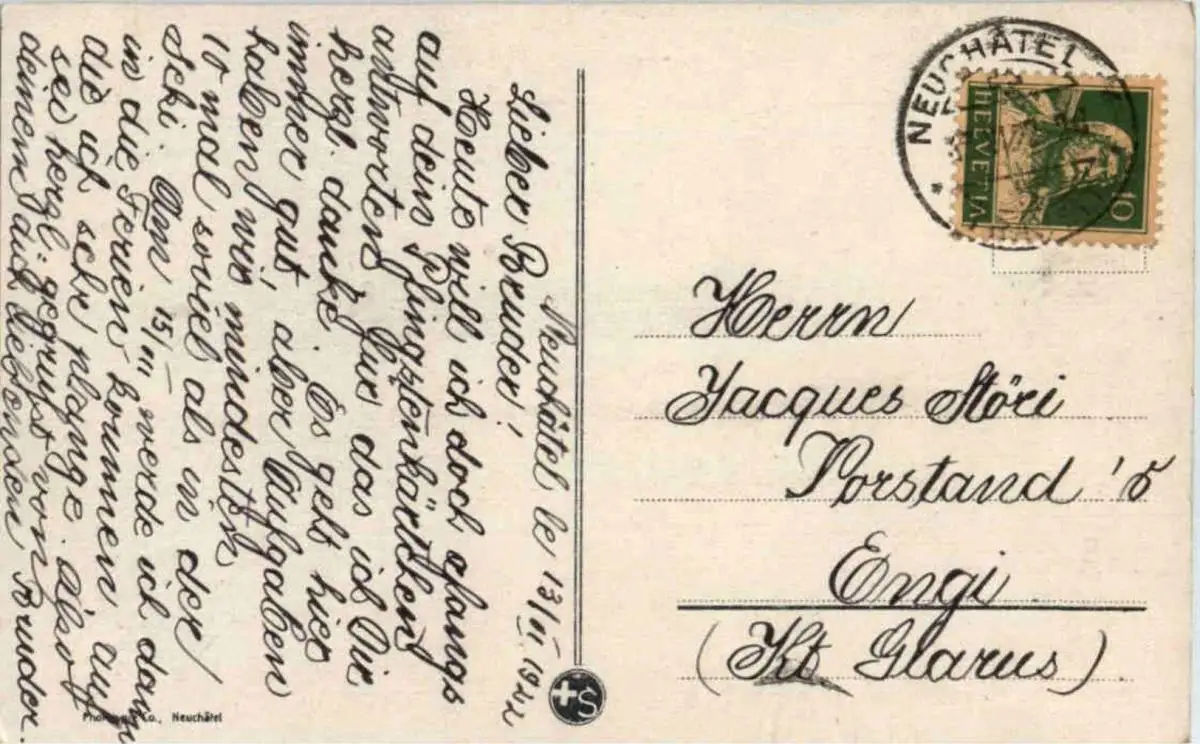 Neuchâtel le 13/VI. 1924
Lieber Bruder!
Heute will ich doch
auf dein Pfingstenkärtchen
antworten, für das ich Dir
herzl. danke. Es geht hier
immer gut, aber Aufgaben
haben wir mindestens
10 mal soviel als in der
Seki. Am 15/VII werde ich dann
in die Ferien kommen, auf
die ich sehr plange. Also
sei herzl. gegrüsst von
deinem dich liebenden Bruder.
NEUCHÂTEL
HELVETIA
10
Herrn
Jacques Störi
Vorstand's
Engi
(Kt Glarus)
S
Co., Neuchâtel